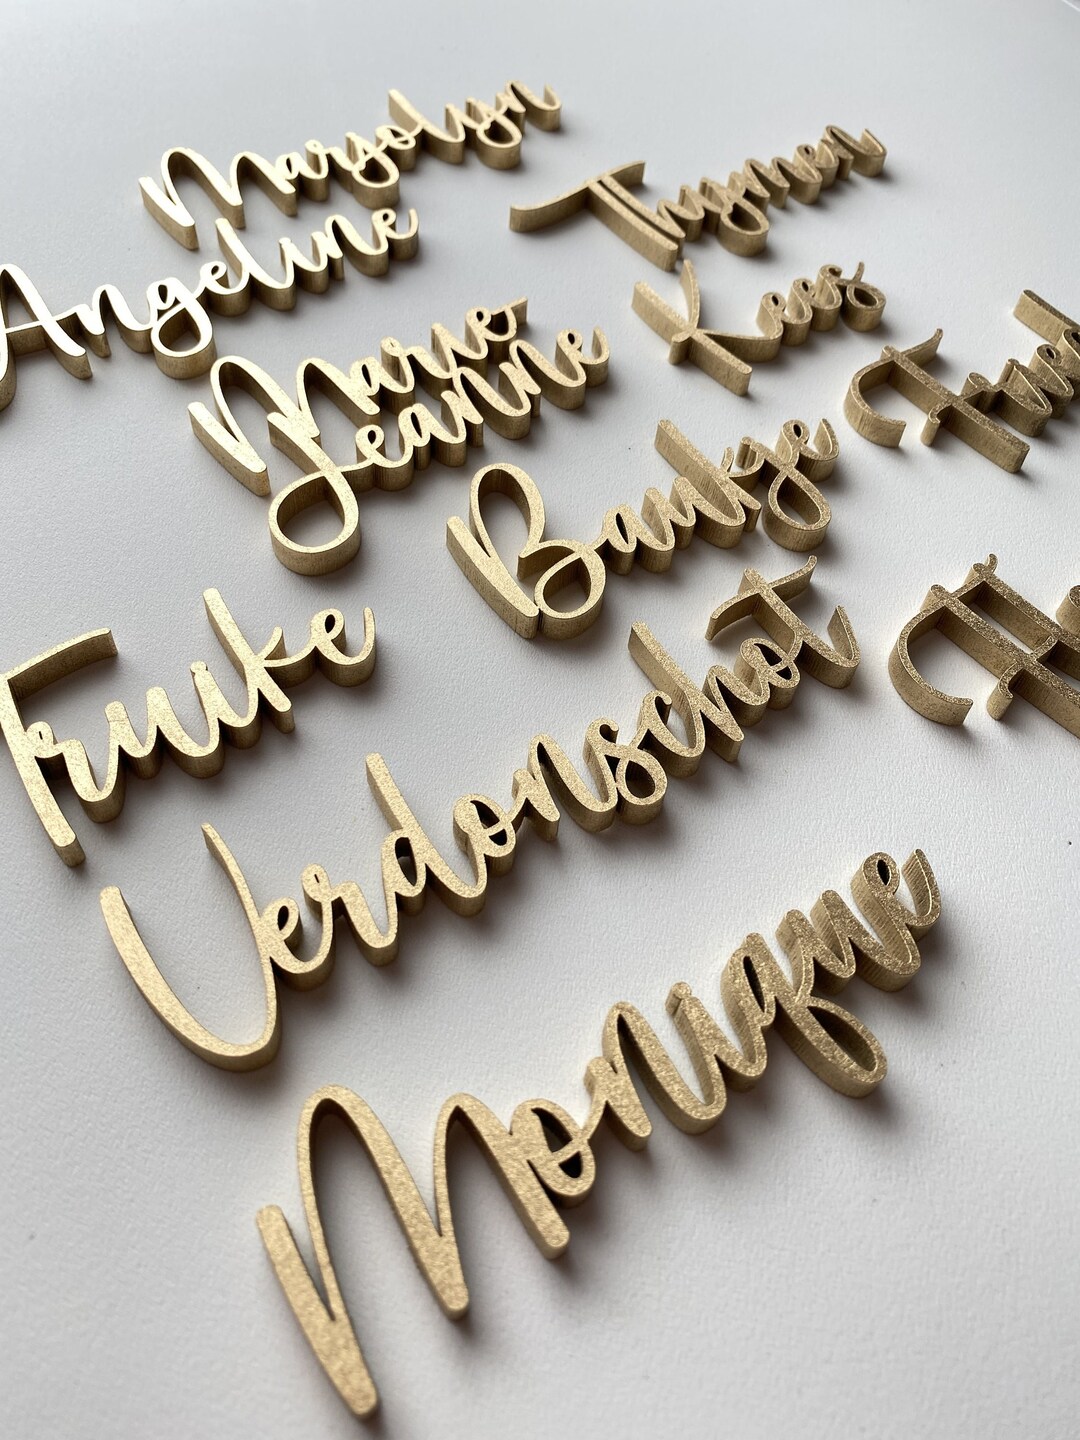 Marjolyn
Thymen
Angeline
Marie-
Jeanne
Kees
Baukje
Fruike
Verdonschot
Monique